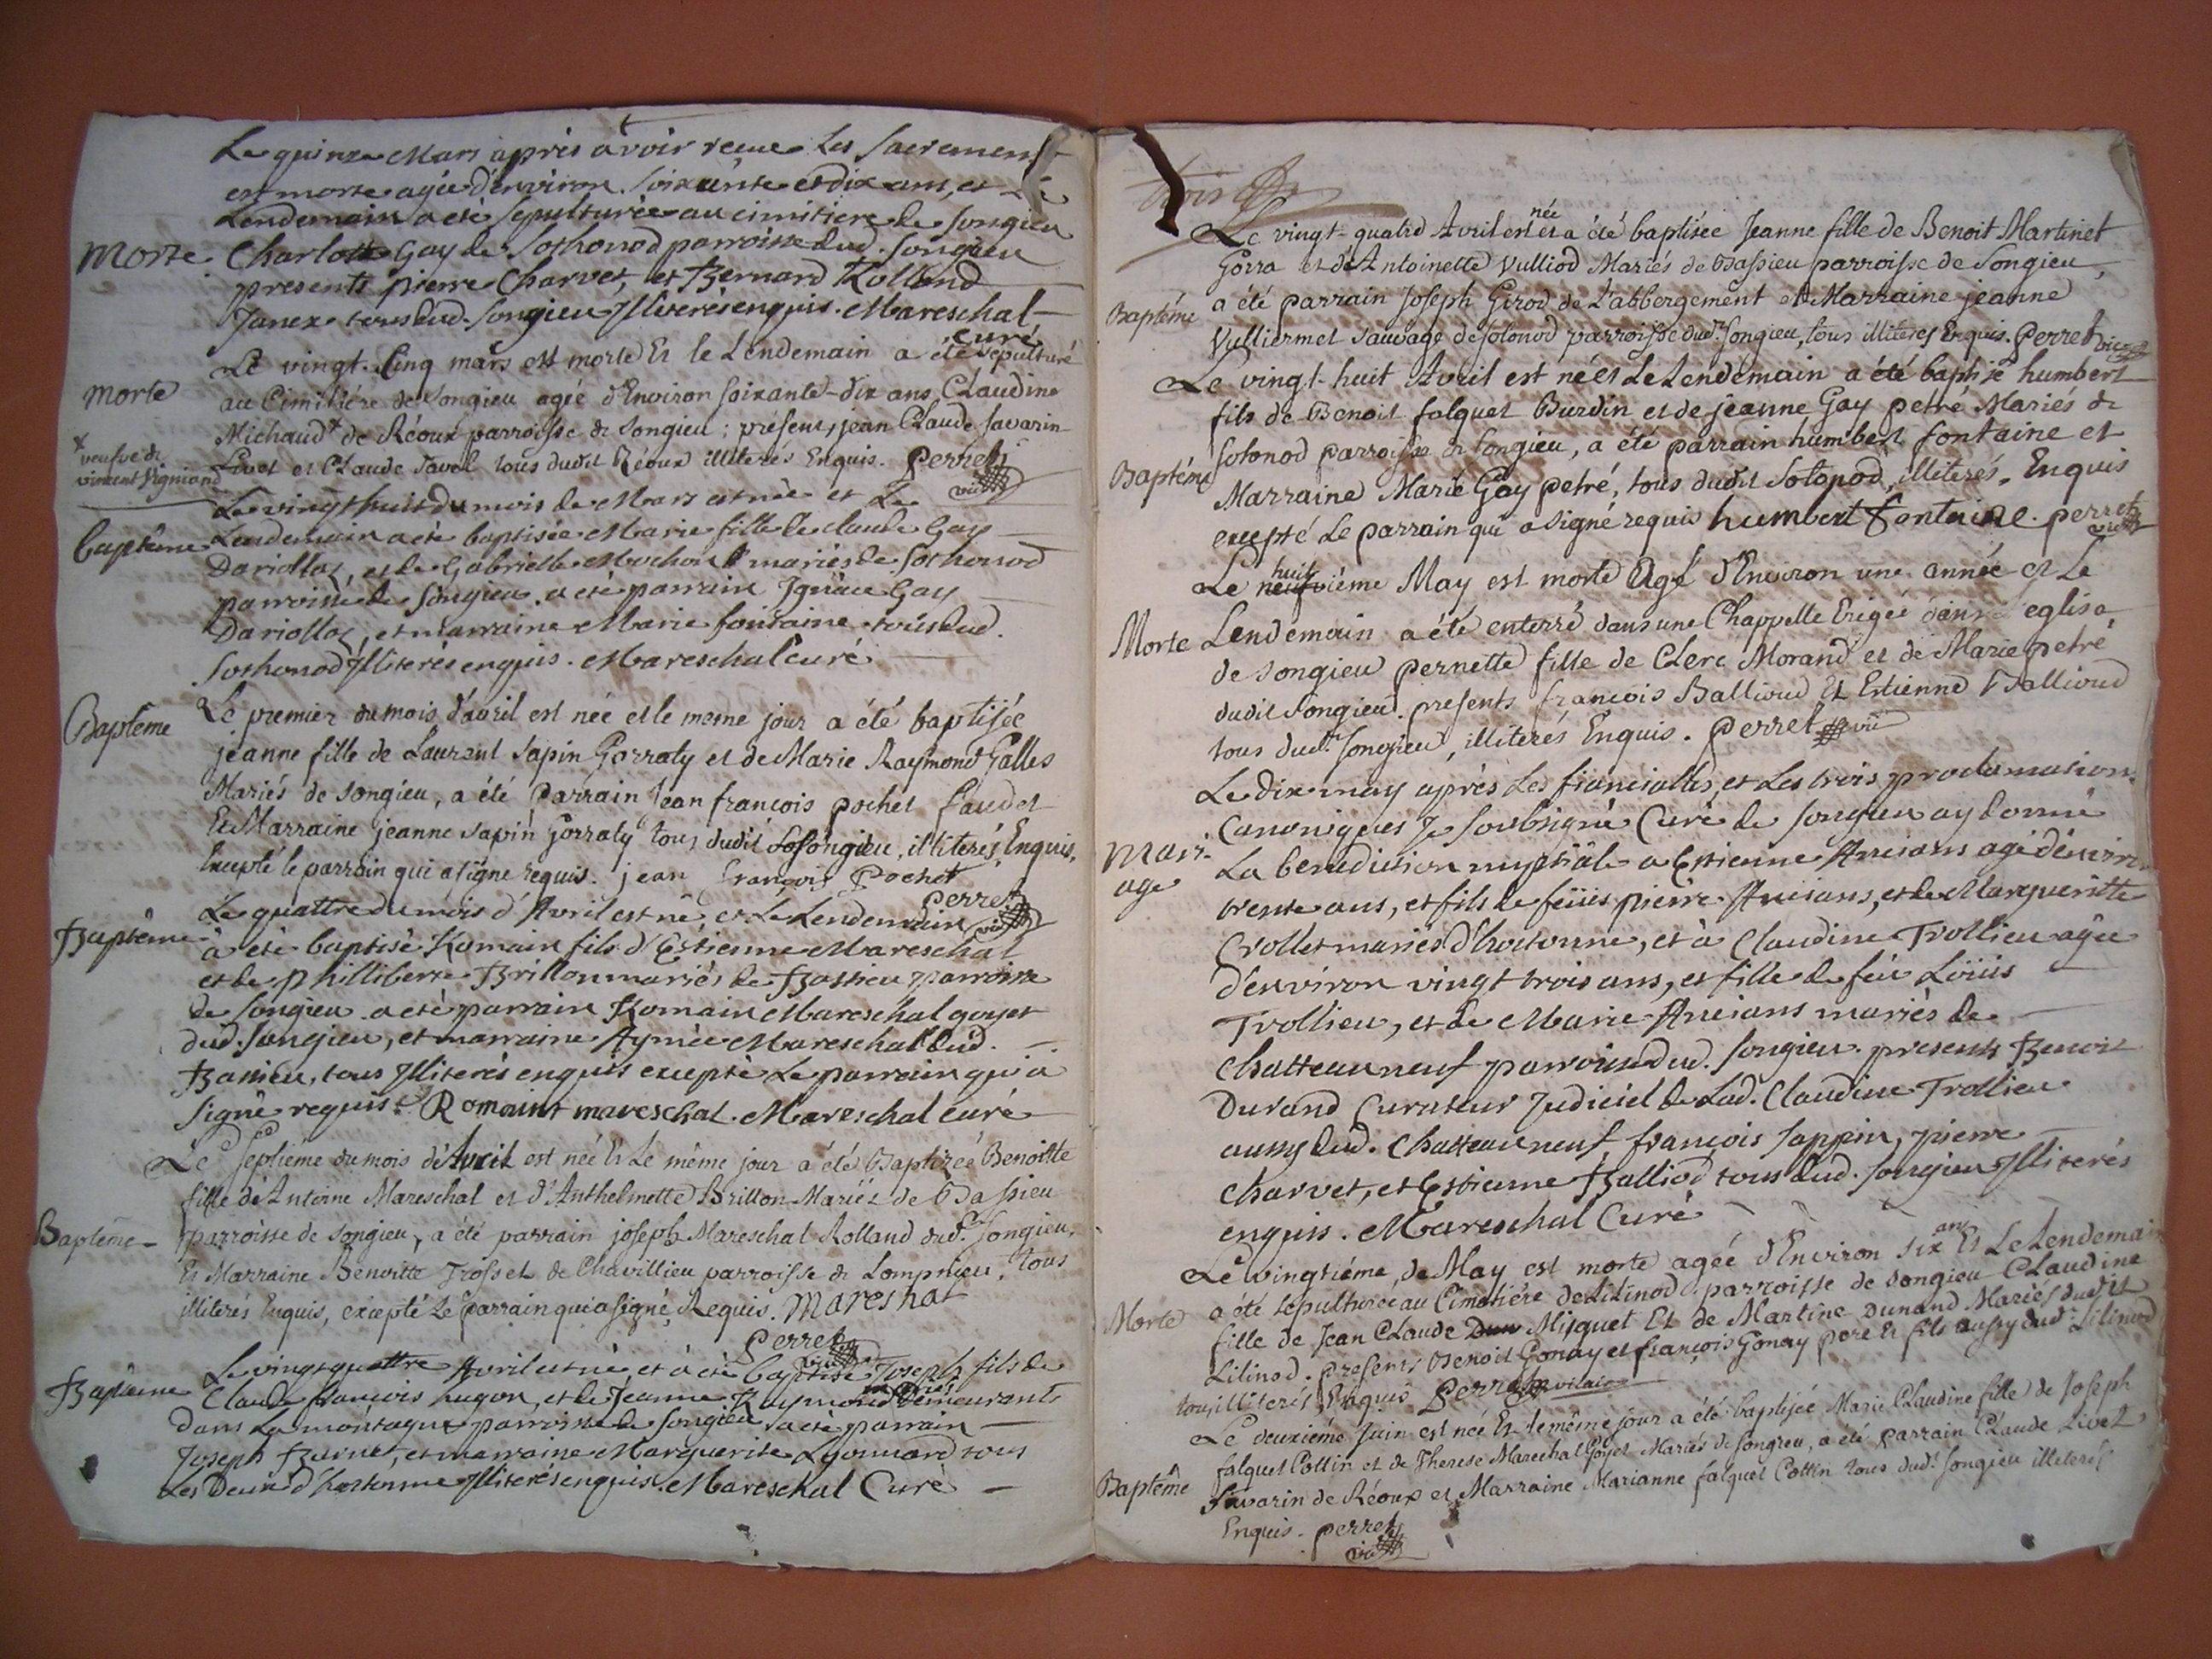 Le quinze Mars après avoir recue Les Sacremens
est morte agée d'environ soixante et dix ans, et Le
Lendemain a eté sepulturée au cimitiere de Songieu
Morte Charlotte Gay de Sothonod parroisse dud. Songieu
presents pierre Charvet, et Bernard Rolland
Janex tous dud. Songieu Illiterés enquis. Mareschal
curé
Le vingt-Cinq mars est morte Et le Lendemain a été sepulturé
morte au Cimitiére de Songieu agée d'Environ soixante-dix ans, Claudine
Michaud + de Réoux parroisse de Songieu; présents, jean Claude Savarin
+ veufve de vincent Vigniand
Livet et Claude Tavel tous dudit Réoux illiterés Enquis. Perret
vic
Le vingt huit du mois de Mars est née et Le
baptême Lendemain a eté baptisée Marie fille de Claude Gay
Dariollaz, et de Gabrielle Mochon mariés de Sothonod
parroisse de Songieu. a eté parrain Ignace Gay
Dariollaz, et marraine Marie fontaine tous dud.
Sothonod Illiterés enquis. Mareschal curé
Baptême Le premier du mois d'avril est née et le meme jour a été baptisée
jeanne fille de Laurent Sapin Gorraty et de Marie Raymond Galles
Mariés de Songieu, a été Parrain Jean françois pochet faudet
Et Marraine jeanne Sapin Gorraty tous dudit Songieu, illiterés Enquis,
Excepté le parrain qui a signé requis. jean françois Pochet
Perret
vic
Le quattre du mois d'Avril est né et Le Lendemain
Baptême a eté baptisé Romain fils d'Estienne Mareschal
et de Philliberte Brillon mariés de Bassieu parroisse
de Songieu. a eté parrain Romain Mareschal goyet
dud. Songieu, et marraine Aymée Mareschal dud.
Bassieu, tous Illiterés enquis excepté Le parrain qui a
signé requis. Romaint mareschal. Mareschal curé
Le septiéme du mois d'Avril est née Et Le même jour a été Baptizée Benoitte
fille de Antoine Mareschal et d'Anthelmette Brillon Mariés de Bassieu
Baptême parroisse de Songieu, a été parrain joseph Mareschal Rolland dud.t Songieu,
Et Marraine Benoitte Trosset de Chavillieu parroisse de Lompnieu, tous
illiterés Enquis, excepté Le parrain qui a signé Requis. Mareshal
Perret
vic
Le vingt quattre Avril est né et a eté baptisé Joseph fils de
Baptême Claude françois hugon, et de Jeanne Raymond mariés Demeurants
dans La montagne parroisse de Songieu a eté parrain
Joseph Burnet, et marraine Marguerite Lyonnard tous
Les Deux d'hostonne Illiterés enquis. Mareschal Curé
trois
Le vingt-quatre Avril est née et a été baptisée Jeanne fille de Benoit Martinet
Gorra et de Antoinette Vulliod Mariés de Bassieu parroisse de Songieu,
Baptême a été parrain Joseph Girod de L'abbergement et Marraine jeanne
Vulliermet Sauvage de Sotonod parroisse dud.t Songieu, tous illiterés Enquis. Perret vic
Le vingt-huit Avril est né et Le Lendemain a été baptisé humbert
fils de Benoit falquet Burdin et de jeanne Gay petré Mariés de
Sotonod parroisse de Songieu, a été parrain humbert fontaine et
Baptême Marraine Marie Gay petré, tous dudit Sotonod, illiterés, Enquis
excepté Le parrain qui a signé requis humbert fontaine. perret
vic
Le huitiéme May est morte Agé d'Environ une année et Le
Morte Lendemain a été enterré dans une Chappelle Erigée dans eglise
de Songieu pernette fille de Clerc Morand et de Marie petré
dudit Songieu. presents françois Ballioud Et Estienne Ballioud
tous dud.t Songieu, illiterés Enquis. Perret vic
Le dix may après Les fiancialles, et Les trois proclamations
Canoniques Je soubsigné Curé de Songieu ay donné
Mari-age La benediction nuptiale a Estienne Ancians agé d'environ
trente ans, et fils de feüs pierre Ancians, et de Marguerite
Crollet mariés d'hostonne, et à Claudine Trollieu agée
d'environ vingt trois ans, et fille de feü Loüis
Trollieu, et de Marie Ancians mariés de
Chatteauneuf parroisse dud. Songieu. presents Benoit
Durand Curateur Judiciel de Lad. Claudine Trollieu
aussy dud. Chatteauneuf, françois Sappin, pierre
Charvet, et Estienne Balliod tous dud. Songieu Illiterés
enquis. Mareschal Curé
Le vingtiéme, de May est morte agée d'Environ six ans Et Le Lendemain
Morte a été sepulturée au Cimetière de Lilinod parroisse de Songieu Claudine
fille de Jean Claude Miguet Et de Martine Dunand Mariés dudit
Lilinod. presents Benoit Gonay et françois Gonay pere Et fils aussy dud.t Lilinod
tous illiterés Enquis Perret vicaire
Le deuxiéme Juin est née Et le même jour a été baptisée Marie Claudine fille de Joseph
falquet Cottin et de Therese Marechal Goyet Mariés de Songieu, a été parrain Claude Livet
Baptême Savarin de Réoux et Marraine Marianne falquet Cottin tous dud.t Songieu illiterés
Enquis. perret
vic